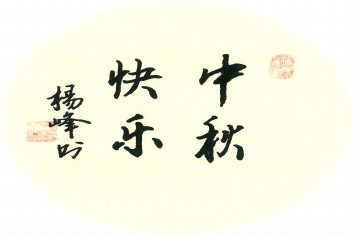 中秋
快乐
楊峰